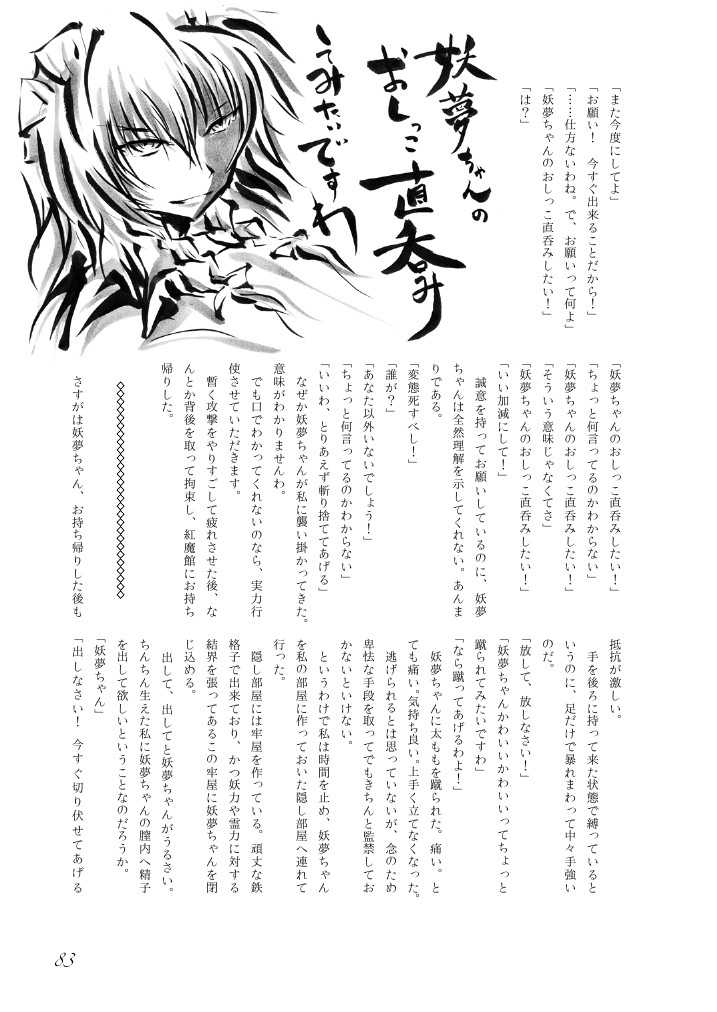 妖夢ちゃんの
おしっこ直呑み
してみたいですわ
「また今度にしてよ」
「お願い！　今すぐ出来ることだから！」
「……仕方ないわね。で、お願いって何よ」
「妖夢ちゃんのおしっこ直呑みしたい！」
「は？」
「妖夢ちゃんのおしっこ直呑みしたい！」
「ちょっと何言ってるのかわからない」
「妖夢ちゃんのおしっこ直呑みしたい！」
「そういう意味じゃなくてさ」
「妖夢ちゃんのおしっこ直呑みしたい！」
「いい加減にして！」
　誠意を持ってお願いしているのに、妖夢
ちゃんは全然理解を示してくれない。あんま
りである。
「変態死すべし！」
「誰が？」
「あなた以外いないでしょう！」
「ちょっと何言ってるのかわからない」
「いいわ、とりあえず斬り捨ててあげる」
　なぜか妖夢ちゃんが私に襲い掛かってきた。
意味がわかりませんわ。
　でも口でわかってくれないのなら、実力行
使させていただきます。
　暫く攻撃をやりすごして疲れさせた後、な
んとか背後を取って拘束し、紅魔館にお持ち
帰りした。
◇◇◇◇◇◇◇◇◇◇◇◇◇◇◇◇◇◇◇◇◇◇
　さすがは妖夢ちゃん、お持ち帰りした後も
抵抗が激しい。
　手を後ろに持って来た状態で縛っていると
いうのに、足だけで暴れまわって中々手強い
のだ。
「放して、放しなさい！」
「妖夢ちゃんかわいいかわいいってちょっと
蹴られてみたいですわ」
「なら蹴ってあげるわよ！」
　妖夢ちゃんに太ももを蹴られた。痛い。と
ても痛い。気持ち良い。上手く立てなくなった。
　逃げられるとは思っていないが、念のため
卑怯な手段を取ってでもきちんと監禁してお
かないといけない。
　というわけで私は時間を止め、妖夢ちゃん
を私の部屋に作っておいた隠し部屋へ連れて
行った。
　隠し部屋には牢屋を作っている。頑丈な鉄
格子で出来ており、かつ妖力や霊力に対する
結界を張ってあるこの牢屋に妖夢ちゃんを閉
じ込める。
　出して、出してと妖夢ちゃんがうるさい。
ちんちん生えた私に妖夢ちゃんの膣内へ精子
を出して欲しいということなのだろうか。
「妖夢ちゃん」
「出しなさい！　今すぐ切り伏せてあげる
83